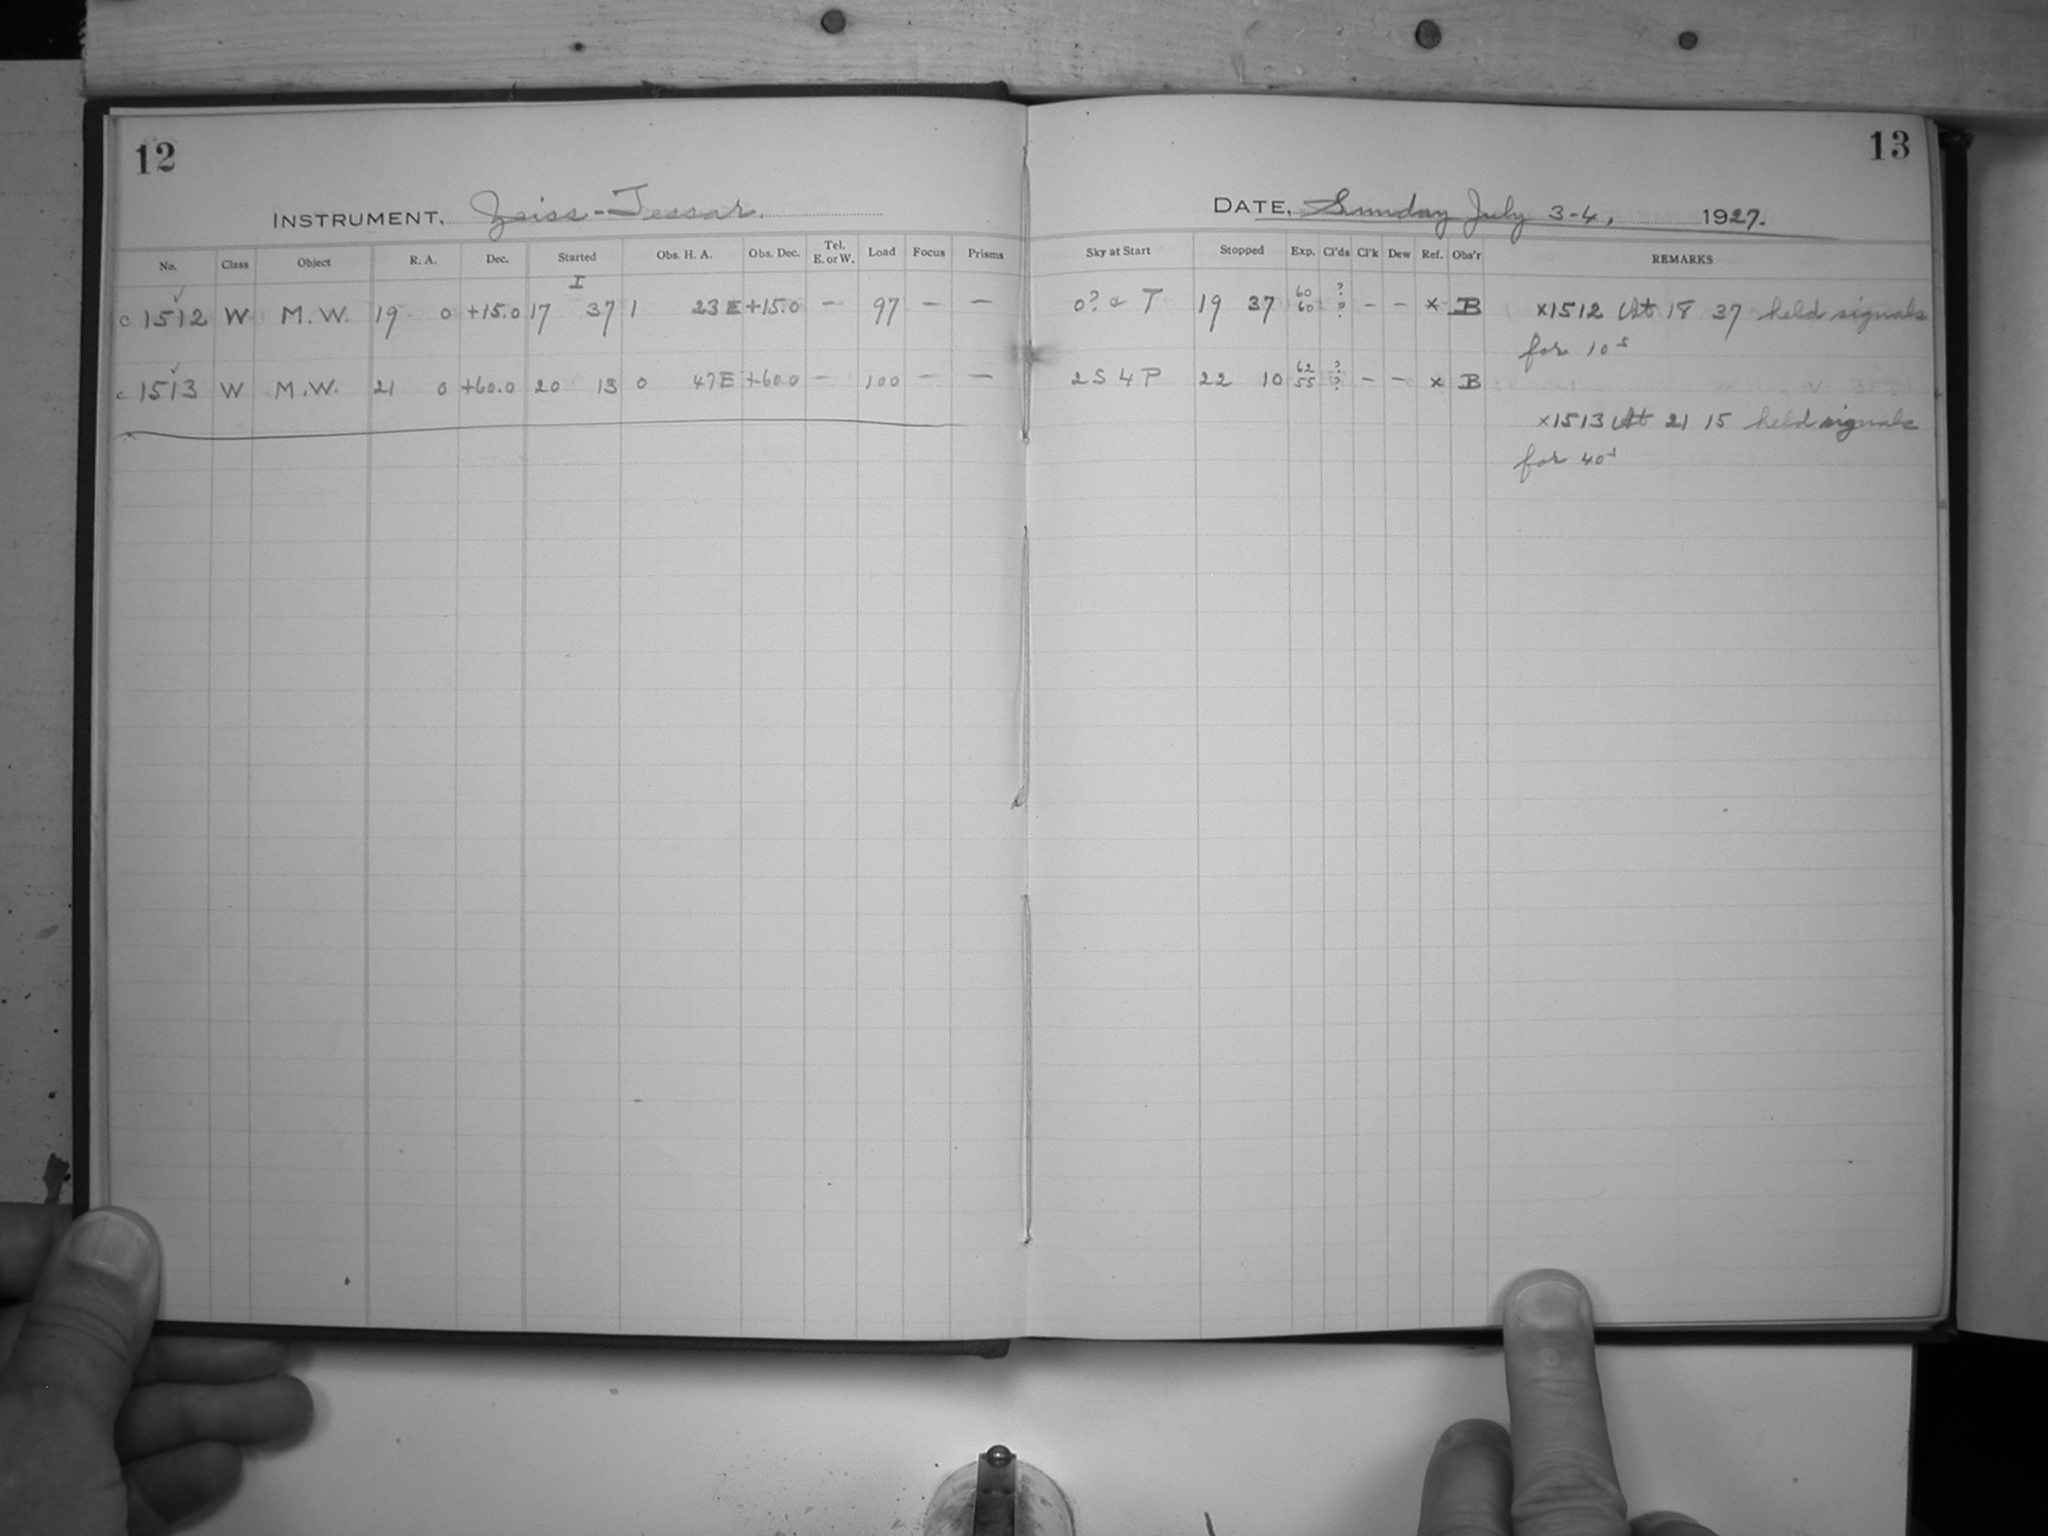 12
INSTRUMENT, Zeiss-Tessar.
No. Class Object R. A. Dec. Started Obs. H. A. Obs. Dec. Tel. E. or W. Load Focus Prisms
I
c 1512 ✓ W M.W. 19 0 +15.0 17 37 1 23 E +15.0 – 97 – –
c 1513 ✓ W M.W. 21 0 +60.0 20 13 0 47 E +60.0 – 100 – –
13
DATE, Sunday July 3-4, 1927.
Sky at Start Stopped Exp. Cl'ds Cl'k Dew Ref. Obs'r REMARKS
0? & T 19 37 60 60 ? ? – – x B x1512 At 18 37 held signals
for 10s
2 S 4 P 22 10 62 55 ? ? – – x B
x1513 At 21 15 held signals
for 40s